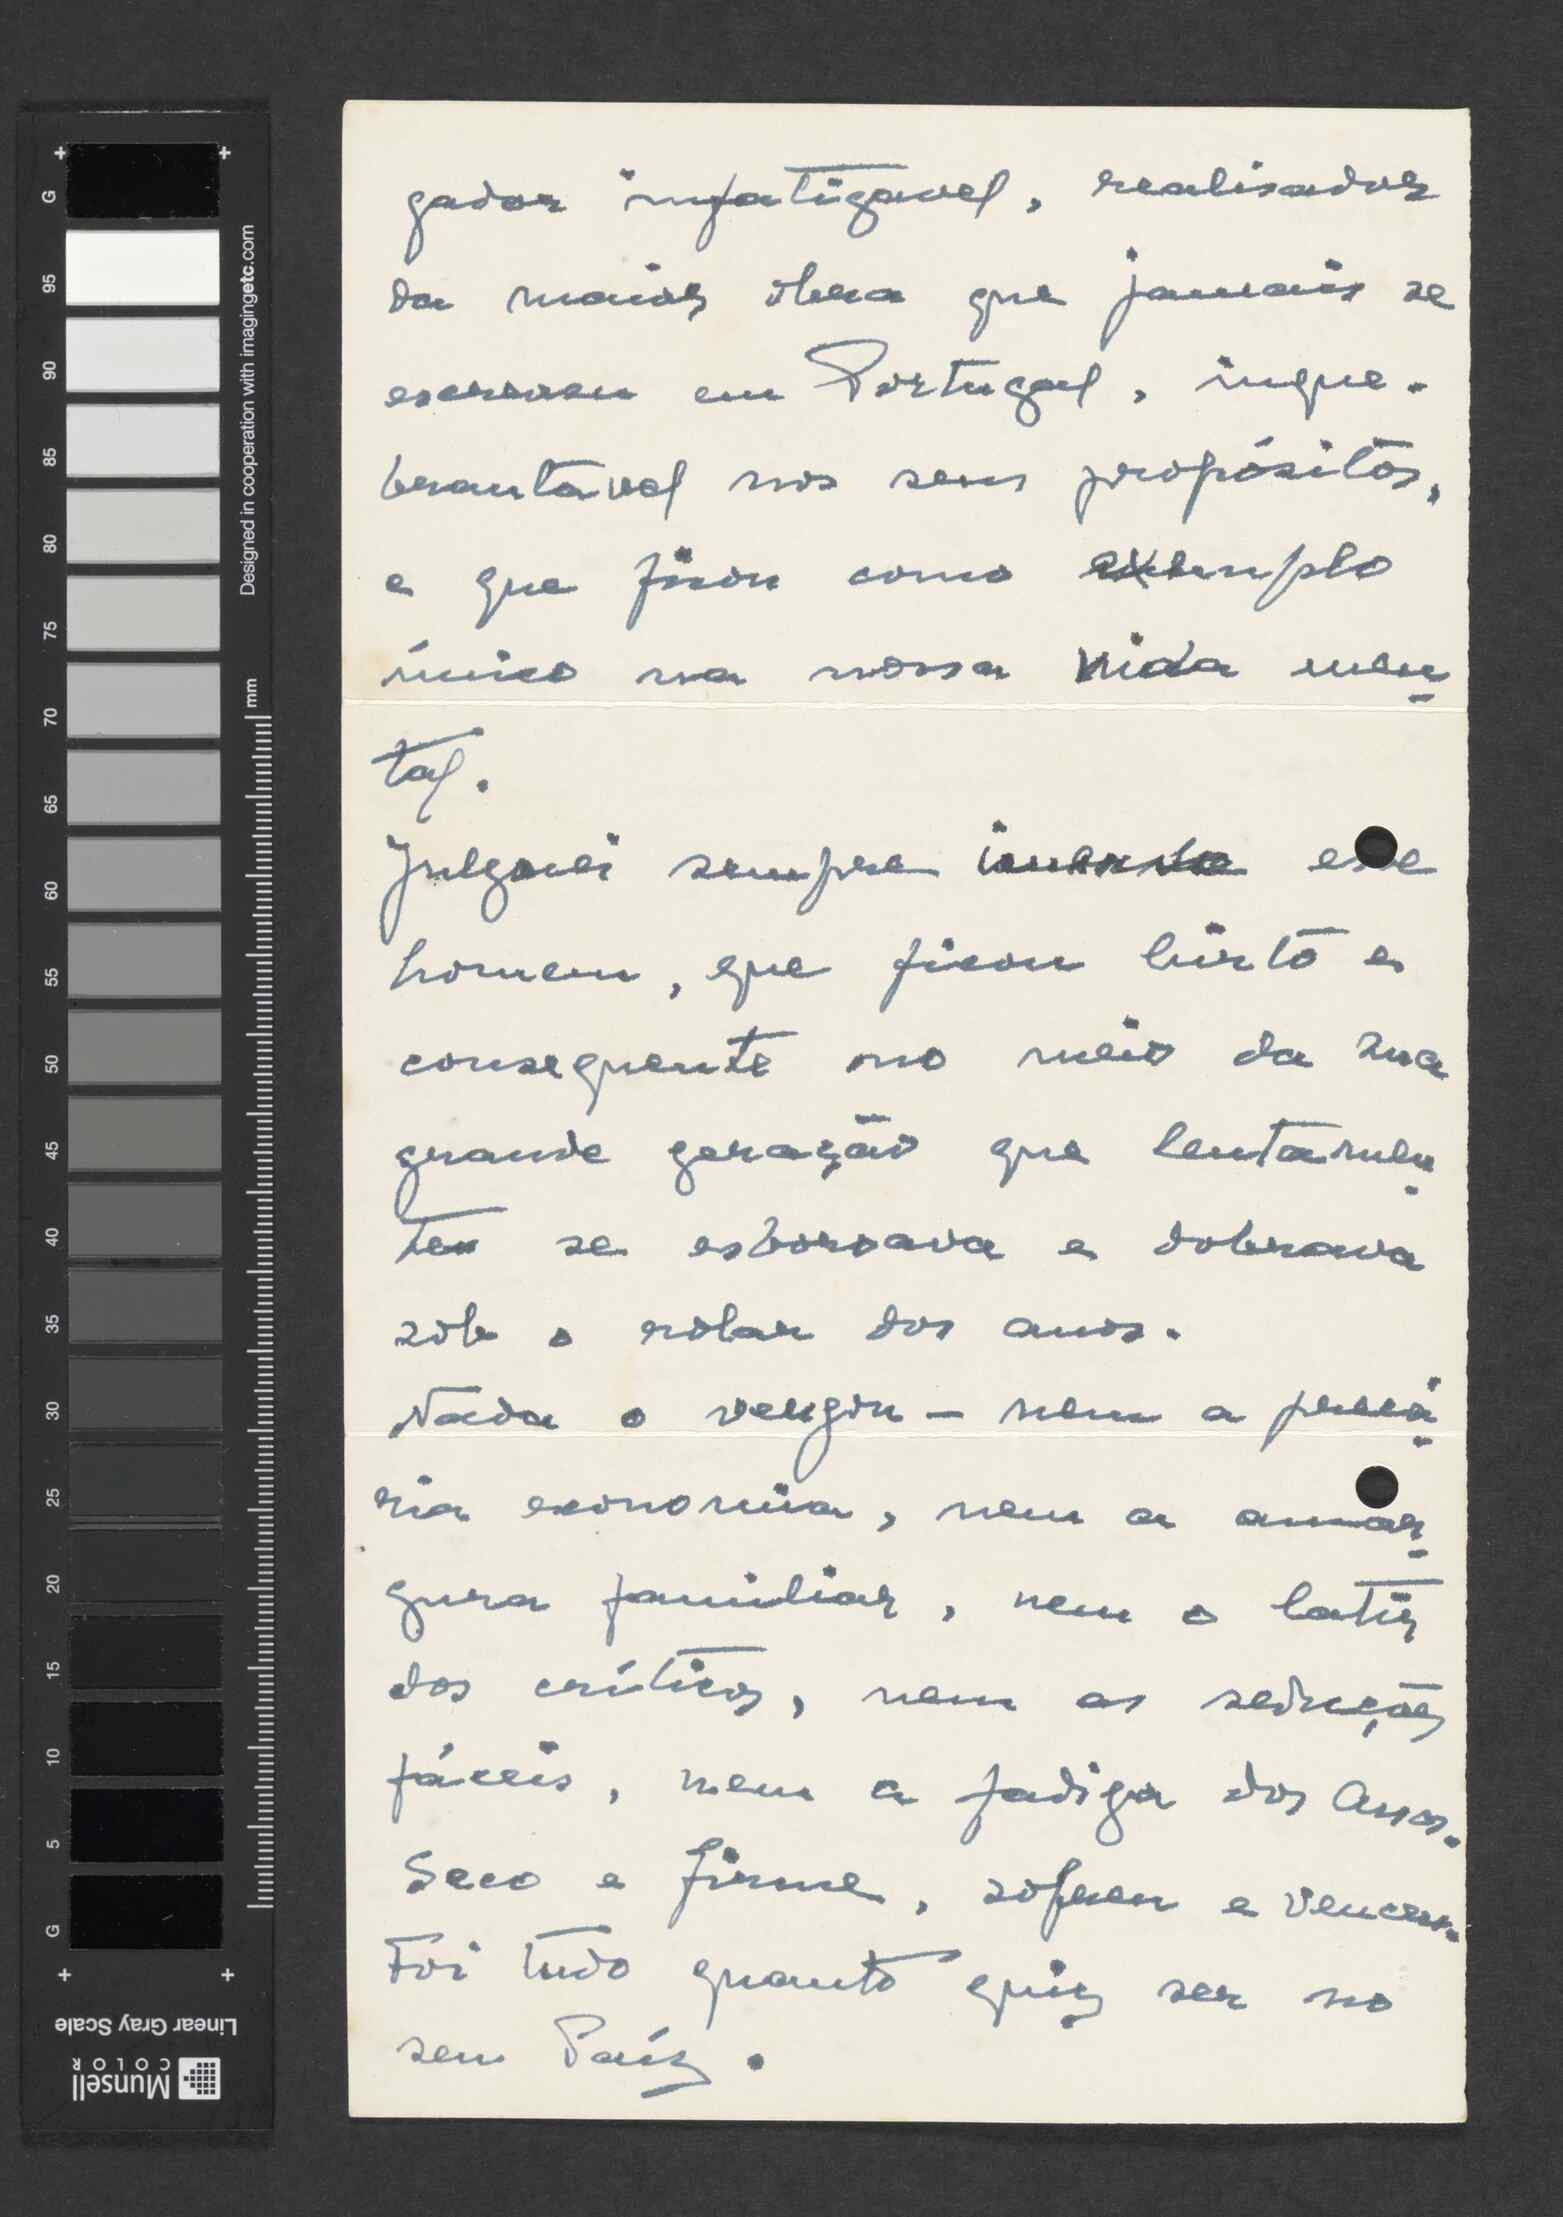 gador infatigavel, realisador
da maior obra que jamais se
escreveu em Portugal, inque-
brantavel nos seus propósitos,
e que ficou como exemplo
único na nossa vida men-
tal.
Julguei sempre imenso esse
homem, que ficou hirto e
consequente no meio da sua
grande geração que lentamen-
te se esboroava e dobrava
sob o rolar dos anos.
Nada o vergou — nem a precá-
ria economia, nem a amar-
gura familiar, nem o latir
dos críticos, nem as seduções
fáceis, nem a fadiga dos anos.
Seco e firme, sofreu e venceu.
Foi tudo quanto quiz ser no
seu Paíz.
G 95 90 85 80 75 70 65 60 55 50 45 40 35 30 25 20 15 10 5 G
Designed in cooperation with imagingetc.com
mm
Linear Gray Scale
Munsell
COLOR